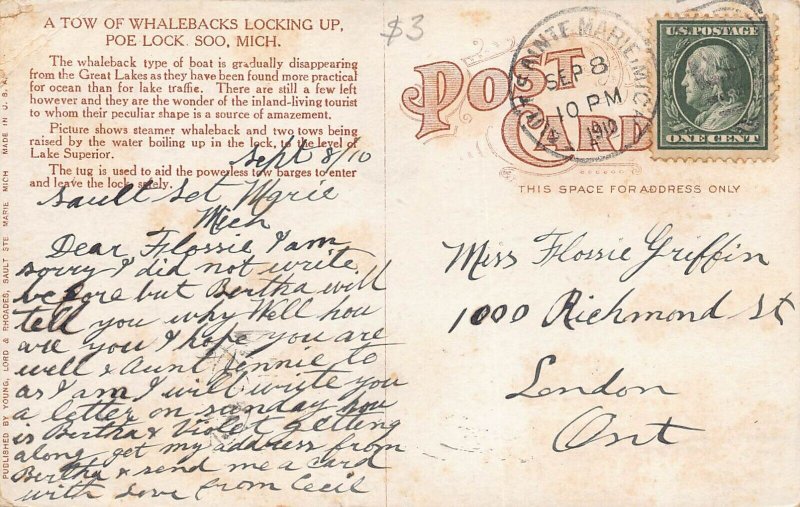 A TOW OF WHALEBACKS LOCKING UP,
POE LOCK. SOO, MICH.
The whaleback type of boat is gradually disappearing
from the Great Lakes as they have been found more practical
for ocean than for lake traffic. There are still a few left
however and they are the wonder of the inland-living tourist
to whom their peculiar shape is a source of amazement.
Picture shows steamer whaleback and two tows being
raised by the water boiling up in the lock, to the level of
Lake Superior.
The tug is used to aid the powerless tow barges to enter
and leave the lock safely.
Sept 8/10
Sault Set Marie
Mich
Dear Flossie I am
sorry I did not write
before but Bertha will
tell you why Well hou
are you I hope you are
well & Aunt Jennie to
as I am I will write you
a letter on sunday hou
is Bertha & Violet getting
along get my address from
Bertha & send me a card
with love from Cecil
PUBLISHED BY YOUNG, LORD & RHOADES, SAULT STE MARIE MICH MADE IN U.S.A.
$3
POST CARD
SAINTE MARIE, MICH.
SEP 8
10 PM
1910
U.S. POSTAGE
ONE CENT
THIS SPACE FOR ADDRESS ONLY
Miss Flossie Griffin
1000 Richmond St
London
Ont